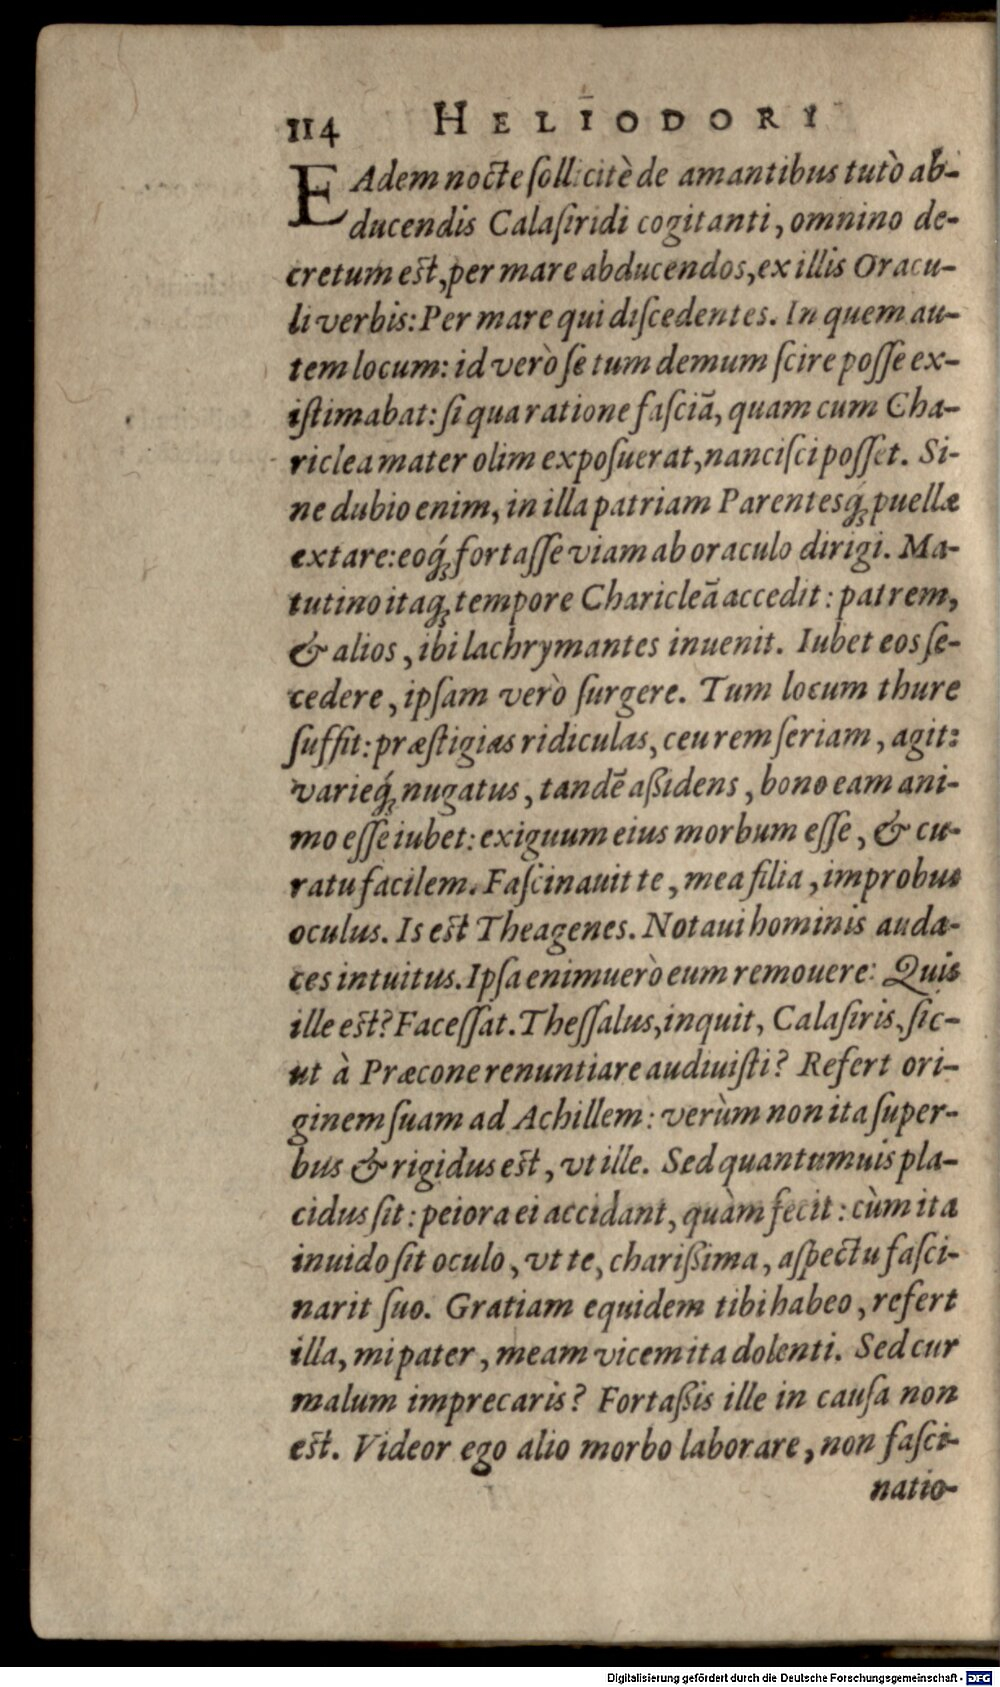 114 HELIODORI
EAdem nocte ſollicitè de amantibus tutò ab-
ducendis Calaſiridi cogitanti, omnino de-
cretum est, per mare abducendos, ex illis Oracu-
li verbis: Per mare qui diſcedentes. In quem au-
tem locum: id verò ſe tum demum ſcire poſſe ex-
iſtimabat: ſi qua ratione faſciã, quam cum Cha-
riclea mater olim expoſuerat, nanciſci poſſet. Si-
ne dubio enim, in illa patriam Parentesq́; puellæ
extare: eoq́; fortaſſe viam ab oraculo dirigi. Ma-
tutino itaq; tempore Charicleã accedit: patrem,
& alios, ibi lachrymantes inuenit. Iubet eos ſe-
cedere, ipſam verò ſurgere. Tum locum thure
ſuffit: præſtigias ridiculas, ceu rem ſeriam, agit:
varieq́; nugatus, tandẽ aßidens, bono eam ani-
mo eſſe iubet: exiguum eius morbum eſſe, & cu-
ratu facilem. Faſcinauit te, mea filia, improbus
oculus. Is est Theagenes. Notaui hominis auda-
ces intuitus. Ipſa enimuerò eum remouere: Quis
ille est? Faceſſat. Theſſalus, inquit, Calaſiris, ſic-
ut à Præcone renuntiare audiuiſti? Refert ori-
ginem ſuam ad Achillem: verùm non ita ſuper-
bus & rigidus est, vt ille. Sed quantumuis pla-
cidus ſit: peiora ei accidant, quàm fecit: cùm ita
inuido ſit oculo, vt te, charißima, aſpectu faſci-
narit ſuo. Gratiam equidem tibi habeo, refert
illa, mi pater, meam vicem ita dolenti. Sed cur
malum imprecaris? Fortaßis ille in cauſa non
est. Videor ego alio morbo laborare, non faſci-
natio-
Digitalisierung gefördert durch die Deutsche Forschungsgemeinschaft - DFG